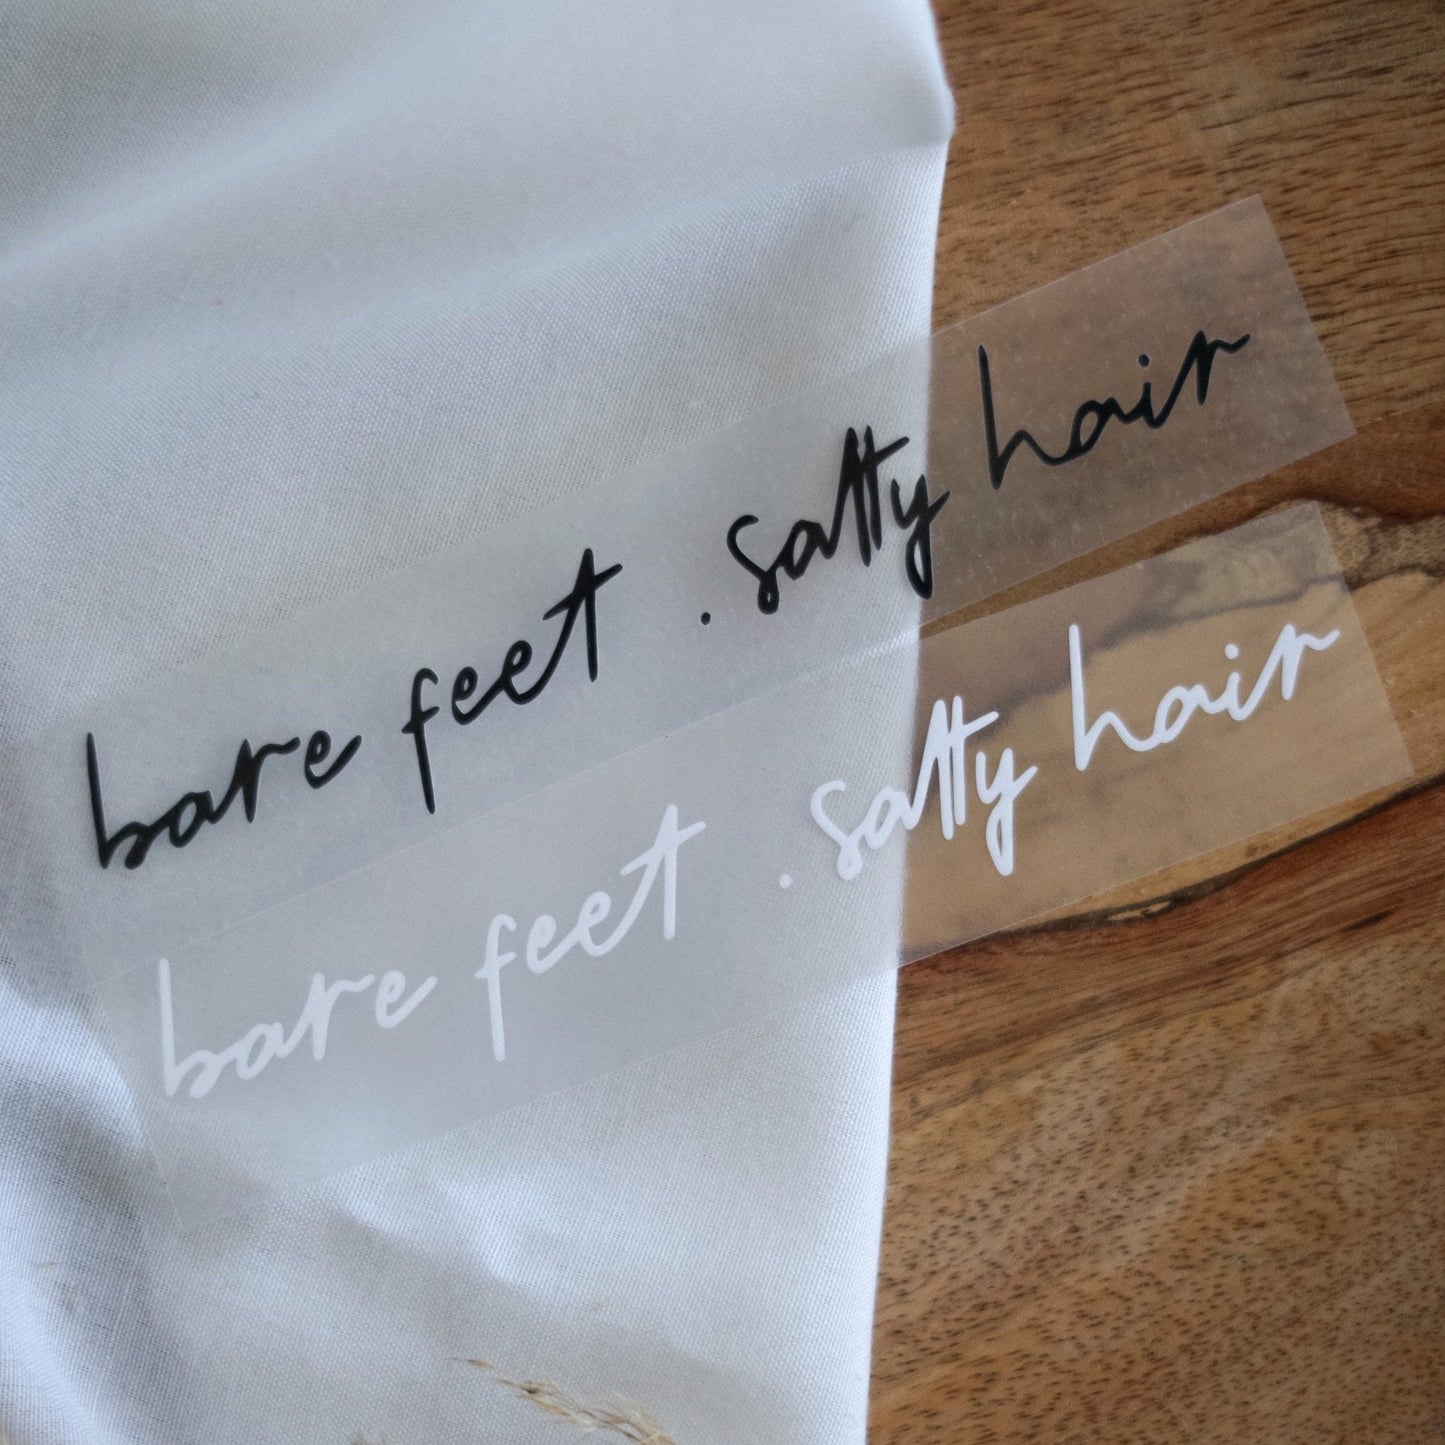 bare feet . salty hair
bare feet . salty hair